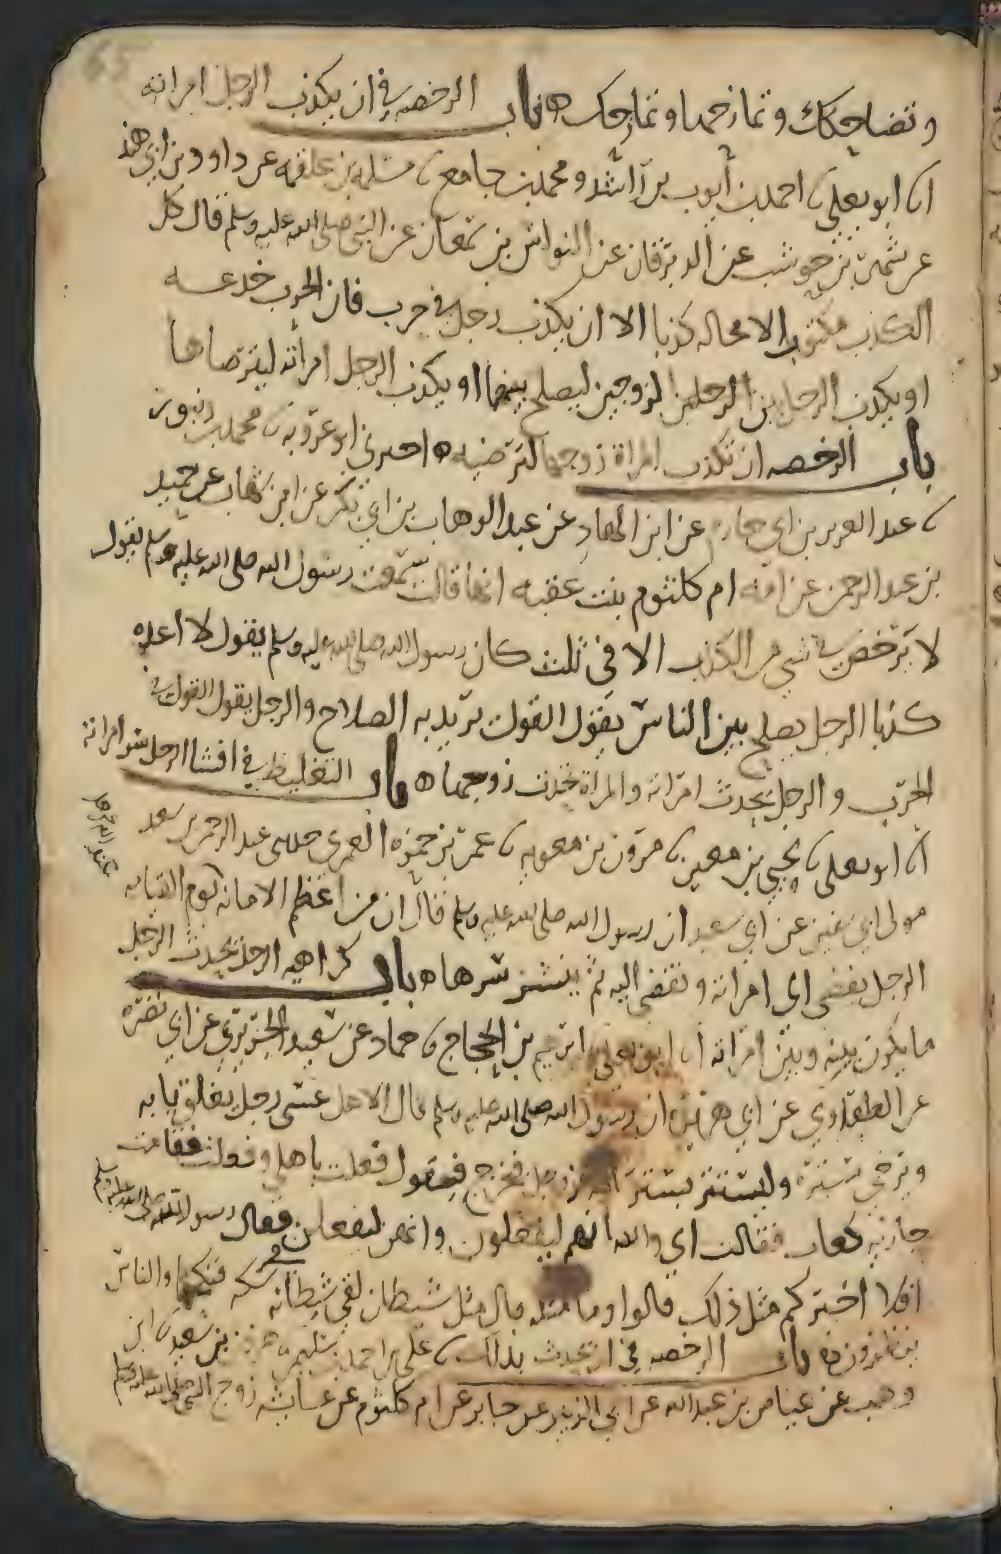 65
وتضاحكك وتمازحها وتمازحك ه باب الرخصه في ان يكذب الرجل امراته
انا ابو يعلى نا احمد بن ايوب بن راشد ومحمد بن جامع نا مسلمه بن علقمه عن داود بن ابي هند
عن شهر بن حوشب عن الزبرقان عن النواس بن سمعان عن النبي صلى الله عليه وسلم قال كل
الكذب مكتوب لا محاله كذبا الا ان يكذب رجل في حرب فان الحرب خدعه
او يكذب الرجل بين الرجلين الزوجين ليصلح بينهما او يكذب الرجل امراته ليترضاها
باب الرخصه ان تكذب امراة زوجها لترضيه ه اخبرني ابو عروبه نا محمد بن زنبور
نا عبد العزيز بن ابي حازم عن ابن الهاد عن عبد الوهاب بن ابي بكر عن ابن شهاب عن حميد
بن عبد الرحمن عن امه ام كلثوم بنت عقبه انها قالت سمعت رسول الله صلى الله عليه وسلم يقول
لا يترخص في شي من الكذب الا في ثلث كان رسول الله صلى الله عليه وسلم يقول لا اعده
كذبا الرجل يصلح بين الناس يقول القول يريد به الصلاح والرجل يقول القول في
الحرب والرجل يحدث امراته والمراة تحدث زوجها ه باب التغليظ في افشا الرجل سر امراته
انا ابو يعلى نا يحيى بن معين نا مرون بن معويه نا عمر بن حمزه العمري حدثني عبد الرحمن بن سعد
مولى ابي سفين عن ابي سعيد ان رسول الله صلى الله عليه وسلم قال ان من اعظم الامانه يوم القيامه
الرجل يفضي الى امراته وتفضي اليه ثم ينشر سرها ه باب كراهيه الرجل يحدث الرجل
ما يكون بينه وبين امراته انا ابو يعلى نا ابرهيم بن الحجاج نا حماد عن سعيد الجريري عن ابي نضره
عن الطفاوي عن ابي هريره ان رسول الله صلى الله عليه وسلم قال الا هل عسى رجل يغلق بابه
ويرخي ستره وليستتر بستر الله عز وجل فيخرج فيقول فعلت باهلي وفعلت فقامت
جاريه كعاب فقالت اي والله انهم ليفعلون وانهن ليفعلن فقال رسول الله صلى الله عليه وسلم
افلا اخبركم مثل ذلك قالوا وما مثله قال مثل شيطان لقي شيطانه في سكه فنكحها والناس
ينظرون ه باب الرخصه في ان يحدث بذلك نا علي بن احمد بن سليمن نا هرون بن سعيد نا ابن
وهب عن عياض بن عبد الله عن ابي الزبير عن جابر عن ام كلثوم عن عائشه زوج النبي صلى الله عليه وسلم